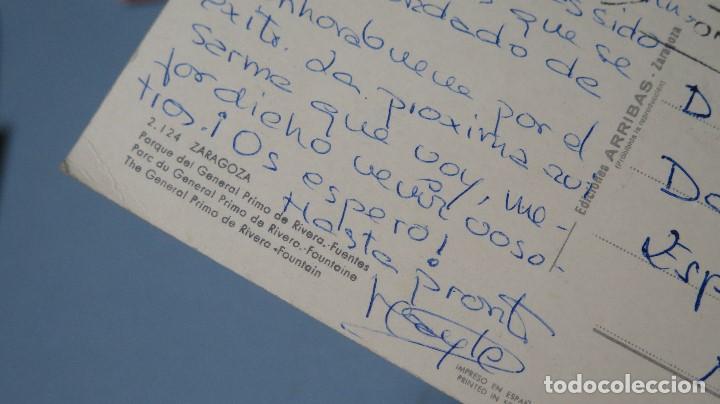 es sido
que se
ordado de
exito. La proxima
Enhorabuena por el
serme que voy, me-
jor dicho venir voso-
tros. ¡Os espero!
Hasta pront
Mayte
2.124 ZARAGOZA
Parque del General Primo de Rivera.-Fuentes
Parc du General Primo de Rivera.-Fountaine
The General Primo de Rivera -Fountain
Ediciones ARRIBAS - Zaragoza
(Prohibida la reproducción)
IMPRESO EN ESPAÑ
PRINTED IN SP
D
Do
Esp
todocoleccion
todocoleccion.net